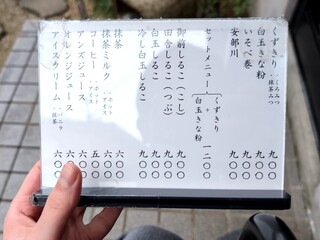 くずきり ・くろみつ ・抹茶みつ 九〇〇
白玉きな粉 九〇〇
いそべ巻 九〇〇
安部川 九〇〇
セットメニュー くずきり + 白玉きな粉 一二〇〇
御前しるこ(こし) 九〇〇
田舎しるこ(つぶ) 九〇〇
白玉しるこ 九〇〇
冷し白玉しるこ 九〇〇
抹茶 六〇〇
抹茶ミルク ・ホット ・アイス 六〇〇
コーヒー ・ホット ・アイス 五〇〇
アンズジュース 六〇〇
オレンジジュース 六〇〇
アイスクリーム ・バニラ ・抹茶 六〇〇